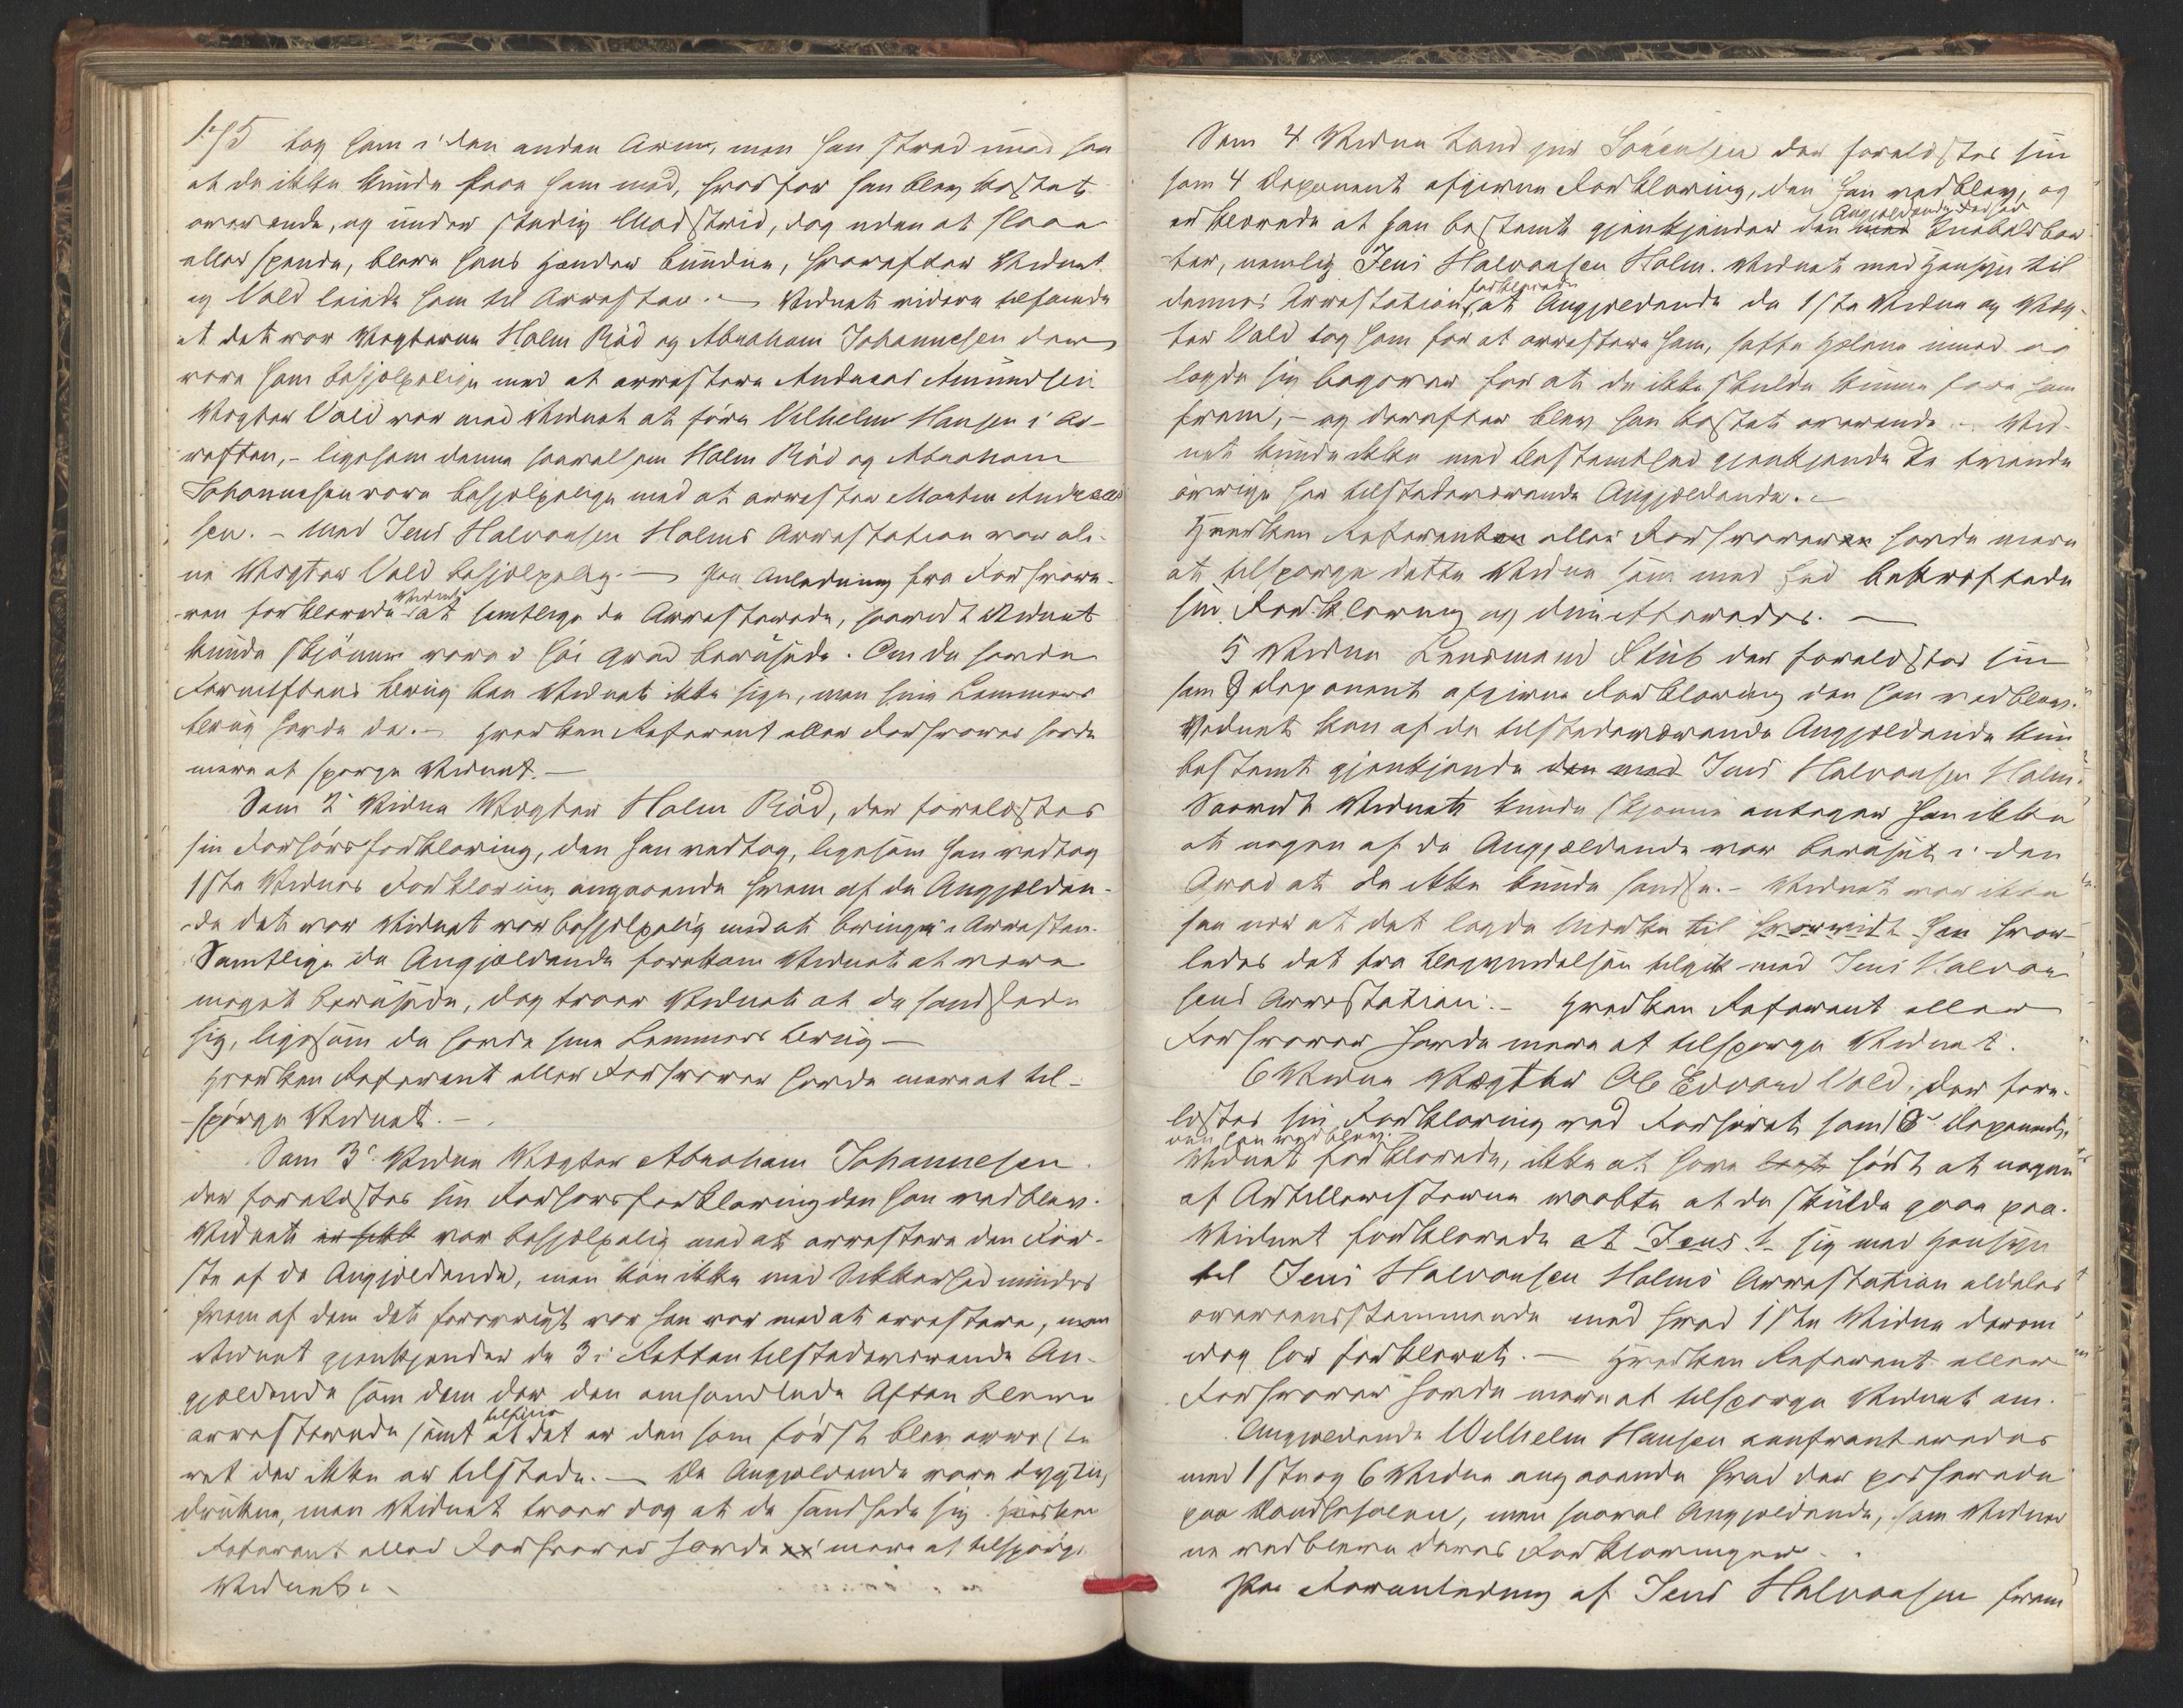 1875 tog ham i den anden Arm, men han stred imod saa
at de ikke kunde faae ham med, hvorfor han blev kastet
overende, og under stadig Modstrid, dog uden at slaae
eller spænde, bleve hans Hænder bundne, hvorefter Vidnet
og Vold leiede ham til Arresten. — Vidnet videre tilføiede
at det var Vægterne Holm Röd og Abraham Johannesen der
vare ham behjelpelige med at arrestere Andreas Amundsen
Vægter Vold var med Vidnet at före Vilhelm Hansen i Ar-
resten, - ligesom denne saavelsom Holm Röd og Abraham
Johannesen vare behjelpelige med at arrestere Morten Andreas
sen. - Med Jens Halvorsen Holms Arrestation var ale-
ne Vægter Vold behjelpelig. — Paa Anledning fra Forsvare-
ren forklarede Vidnet at samtlige de Arresterede, saavidt Vidnet
kunde skjönne vare i höi Grad berusede. Om de havde
Fornuftens Brug kan Vidnet ikke sige, men sine Lemmers
Brug havde de. - Hverken Referent eller Forsvarer havde
mere at spørge Vidnet. —
Som 2 Vidne Vægter Holm Röd, der forelæstes
sin Forhörsforklaring, den han vedtog, ligesom han vedtog
1ste Vidnes Forklaring angaaende hvem af de Angjælden-
de det var Vidnet var behjelpelig med at bringe i Arresten.
Samtlige de Angjældende forekom Vidnet at være
meget berusede, dog troer Vidnet at de sandsede
sig, ligesom de havde sine Lemmers Brug —
Hverken Referent eller Forsvarer havde mere at til-
spørge Vidnet. —
Som 3 Vidne Vægter Abraham Johannesen
der forelæstes sin Forhörsforklaring den han vedblev.
Vidnet var behjelpelig med at arrestere den För-
ste af de Angjældende, men kan ikke med Sikkerhed mindes
hvem af dem det forövrigt var han var med at arrestere, men
Vidnet gjenkjender de 3 i Retten tilstedeværende An-
gjældende som dem der den omhandlede Aften bleve
arresterede samt tilföier at det er den som först blev arreste
ret der ikke er tilstede. — De Angjældende vare dygtig
drukne, men Vidnet troer dog at de sandsede sig. Hverken
Referent eller Forsvarer havde mere at tilspörge
Vidnet. -
Som 4 Vidne der forelæstes sin
som 4 Deponent afgivne Forklaring, den han vedblev, og
erklærede at han bestemt gjenkjender den Angjældende
nemlig Jens Halvorsen Holm. Vidnet med Hensyn til
dennes Arrestation forklarede at Angjældende da 1ste Vidne og Væg-
ter Vold tog ham for at arrestere ham, satte Hælene imod og
lagde sig bagover for at de ikke skulde kunne faae ham
frem, - og derefter blev han kastet overende. - Vid-
net kunde ikke med Bestemthed gjenkjende de tvende
övrige her tilstedeværende Angjældende. -
Hverken Referenten eller Forsvareren havde mere
at tilspørge dette Vidne som med Eed bekræftede
sin Forklaring og dimitteredes. —
5 Vidne Lensmand Stub der forelæstes sin
som Deponent afgivne Forklaring den han vedblev.
Vidnet kan af de tilstedeværende Angjældende kun
bestemt gjenkjende den med Jens Halvorsen Holm.
Saavidt Vidnet kunde skjönne antager han ikke
at nogen af de Angjældende var beruset i den
Grad at de ikke kunde sandse. - Vidnet var ikke
saa nær at det lagde Mærke til hvorvidt han hvor-
ledes det fra Begyndelsen tilgik med Jens Halvor
sens Arrestation. - Hverken Referent eller
Forsvarer havde mere at tilspørge Vidnet.
6 Vidne Vægter Ole Edvard Vold, der fore-
læstes sin Forklaring ved Forhöret som Deponent,
den han vedblev.
Vidnet forklarede, ikke at have hört at nogen
af Artilleristerne raabte at de skulde gaae paa.
Vidnet forklarede at Jens H sig med Hensyn
til Jens Halvorsen Holms Arrestation aldeles
overensstemmende med hvad 1ste Vidne derom
idag har forklaret. — Hverken Referent eller
Forsvarer havde mere at tilspørge Vidnet om.
Angjældende Wilhelm Hansen confronteredes
med 1ste og 6 Vidne angaaende hvad der passerede
paa men saavel Angjældende, som Vidner
ne vedbleve deres Forklaringer. -
Paa Foranledning af Jens Halvorsen frem